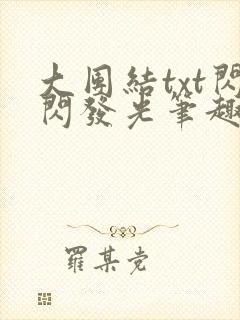 大團結txt閃
閃發光筆趣
羅某党